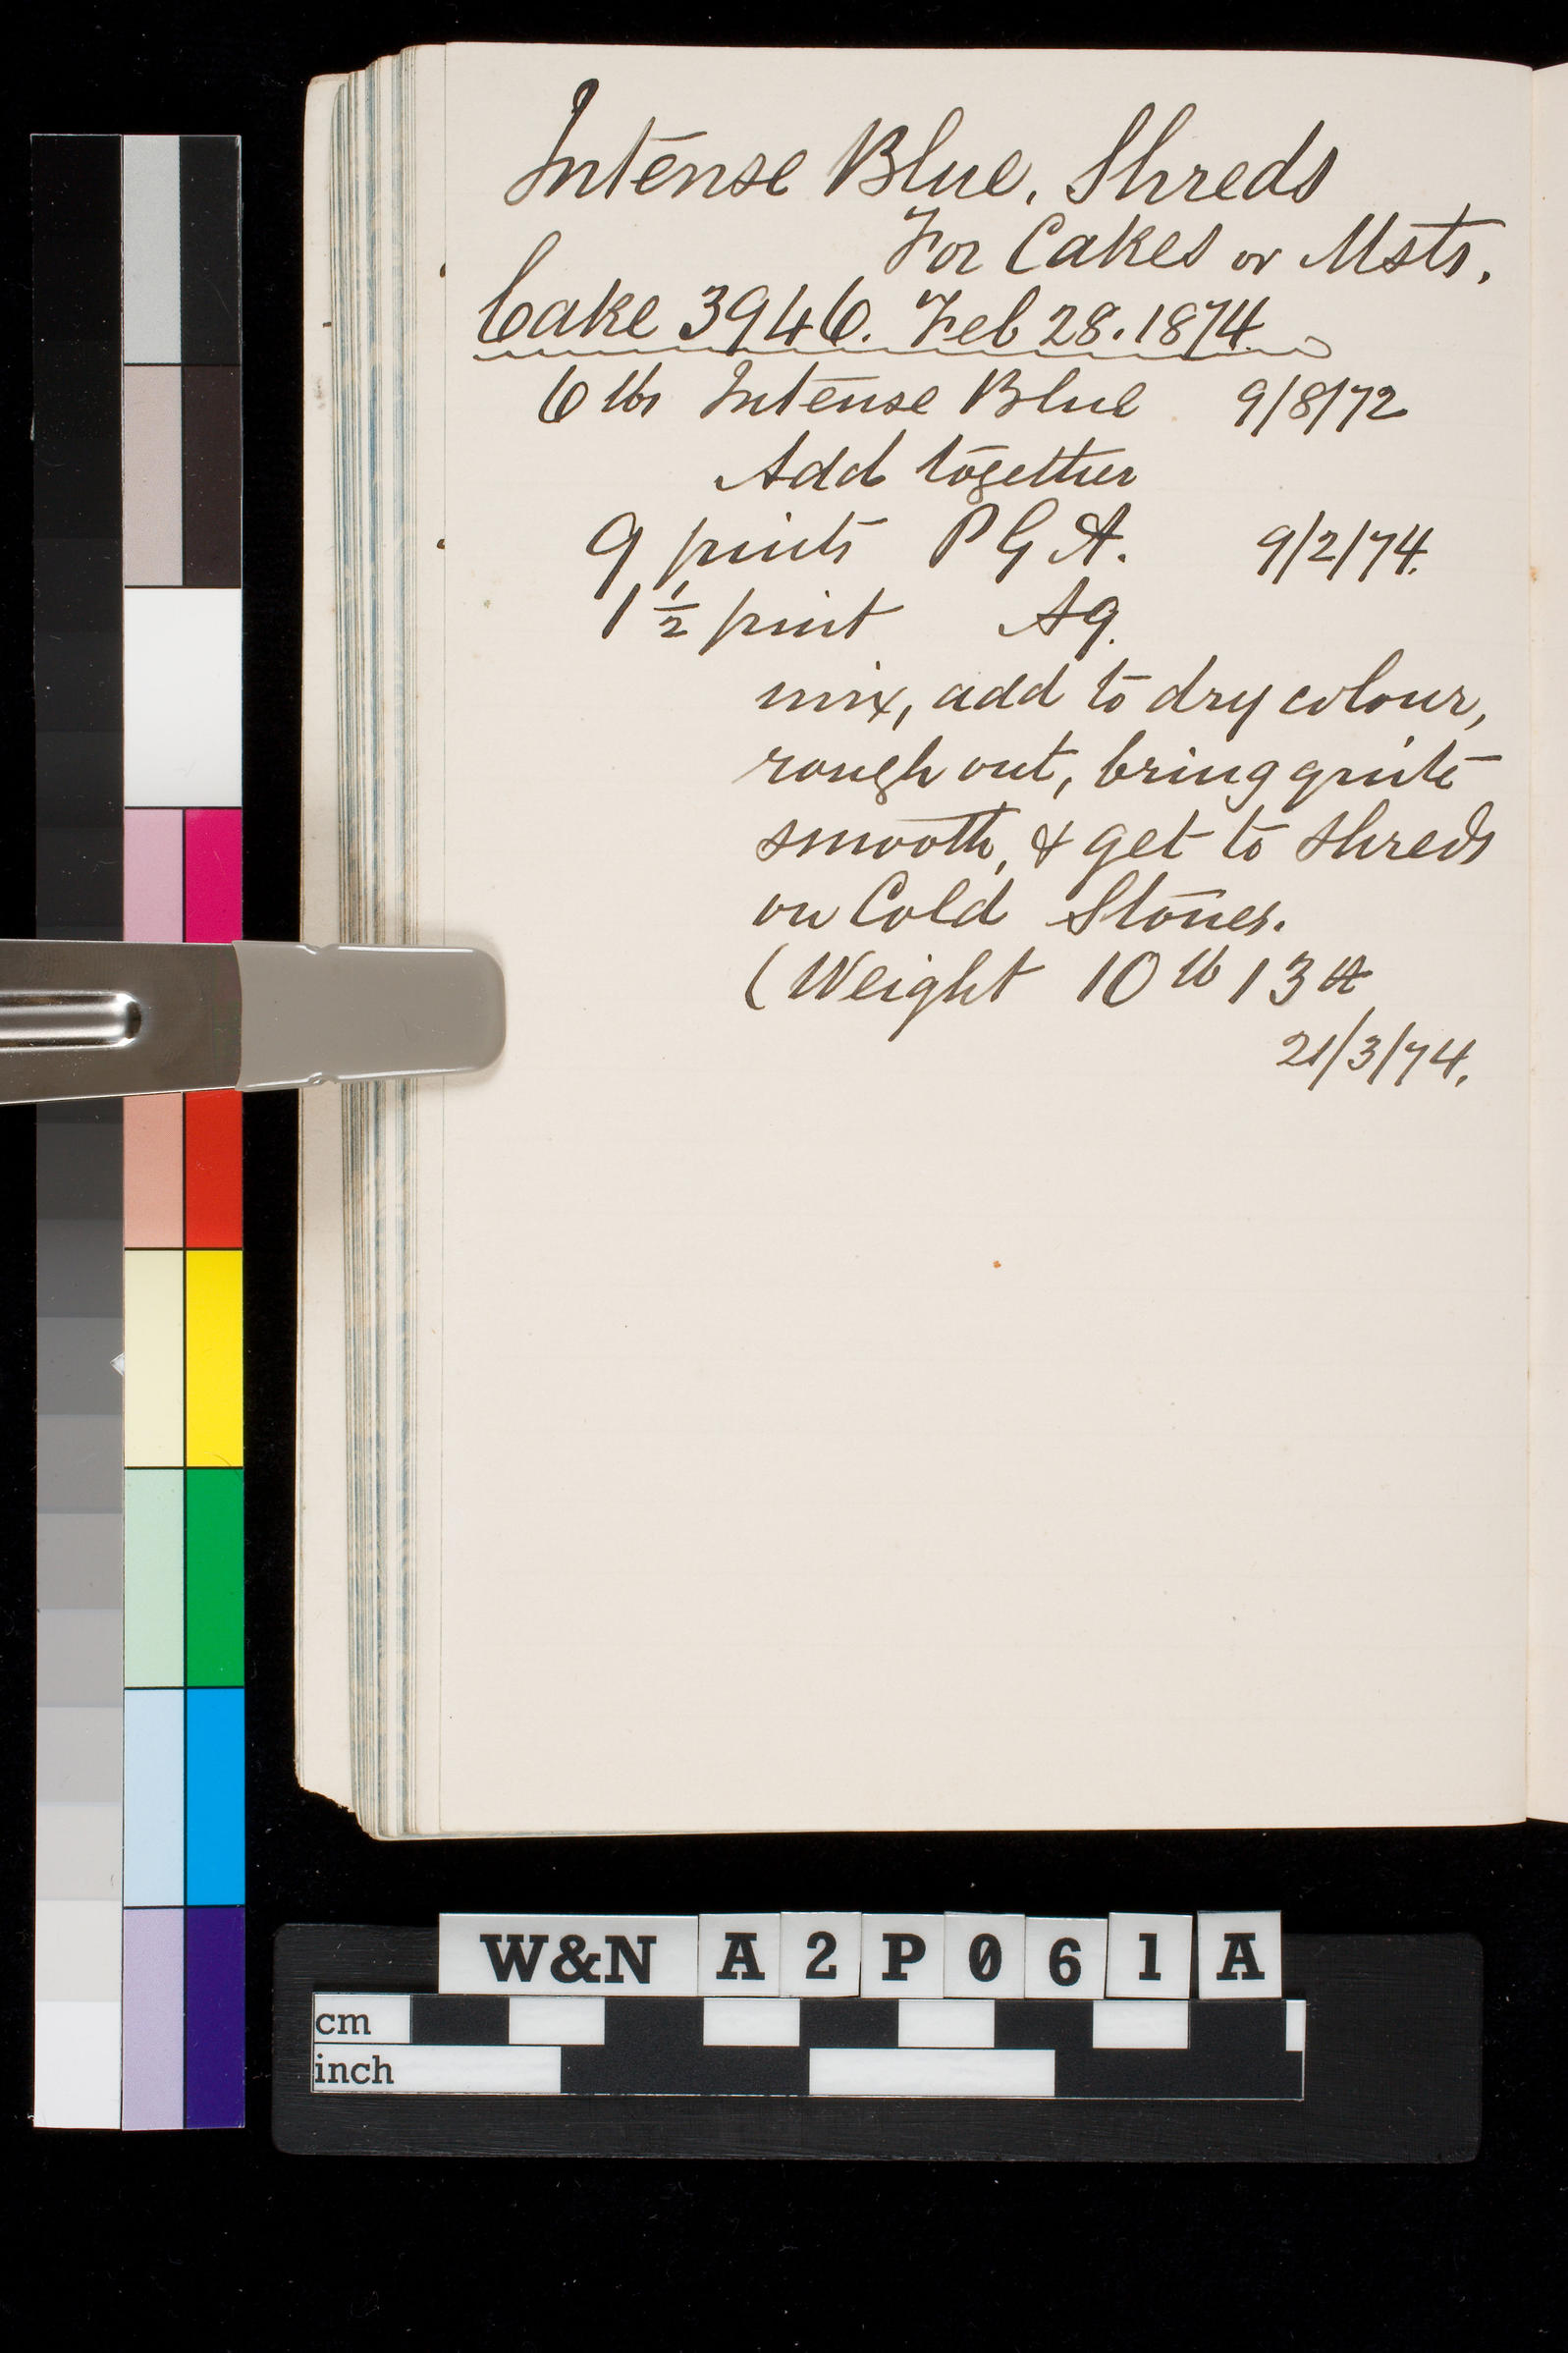 Intense Blue. Shreds
For Cakes or Msts.
Cake 3946. Feb 28. 1874
6 lbs Intense Blue 9/8/72
Add together
9 pints P G A. 9/2/74.
1 1/2 pint Aq.
mix, add to dry colour,
rough out, bring quite
smooth, & get to shreds
on Cold Stones.
(Weight 10 lb 13
21/3/74.
W&N A2P061A
cm
inch